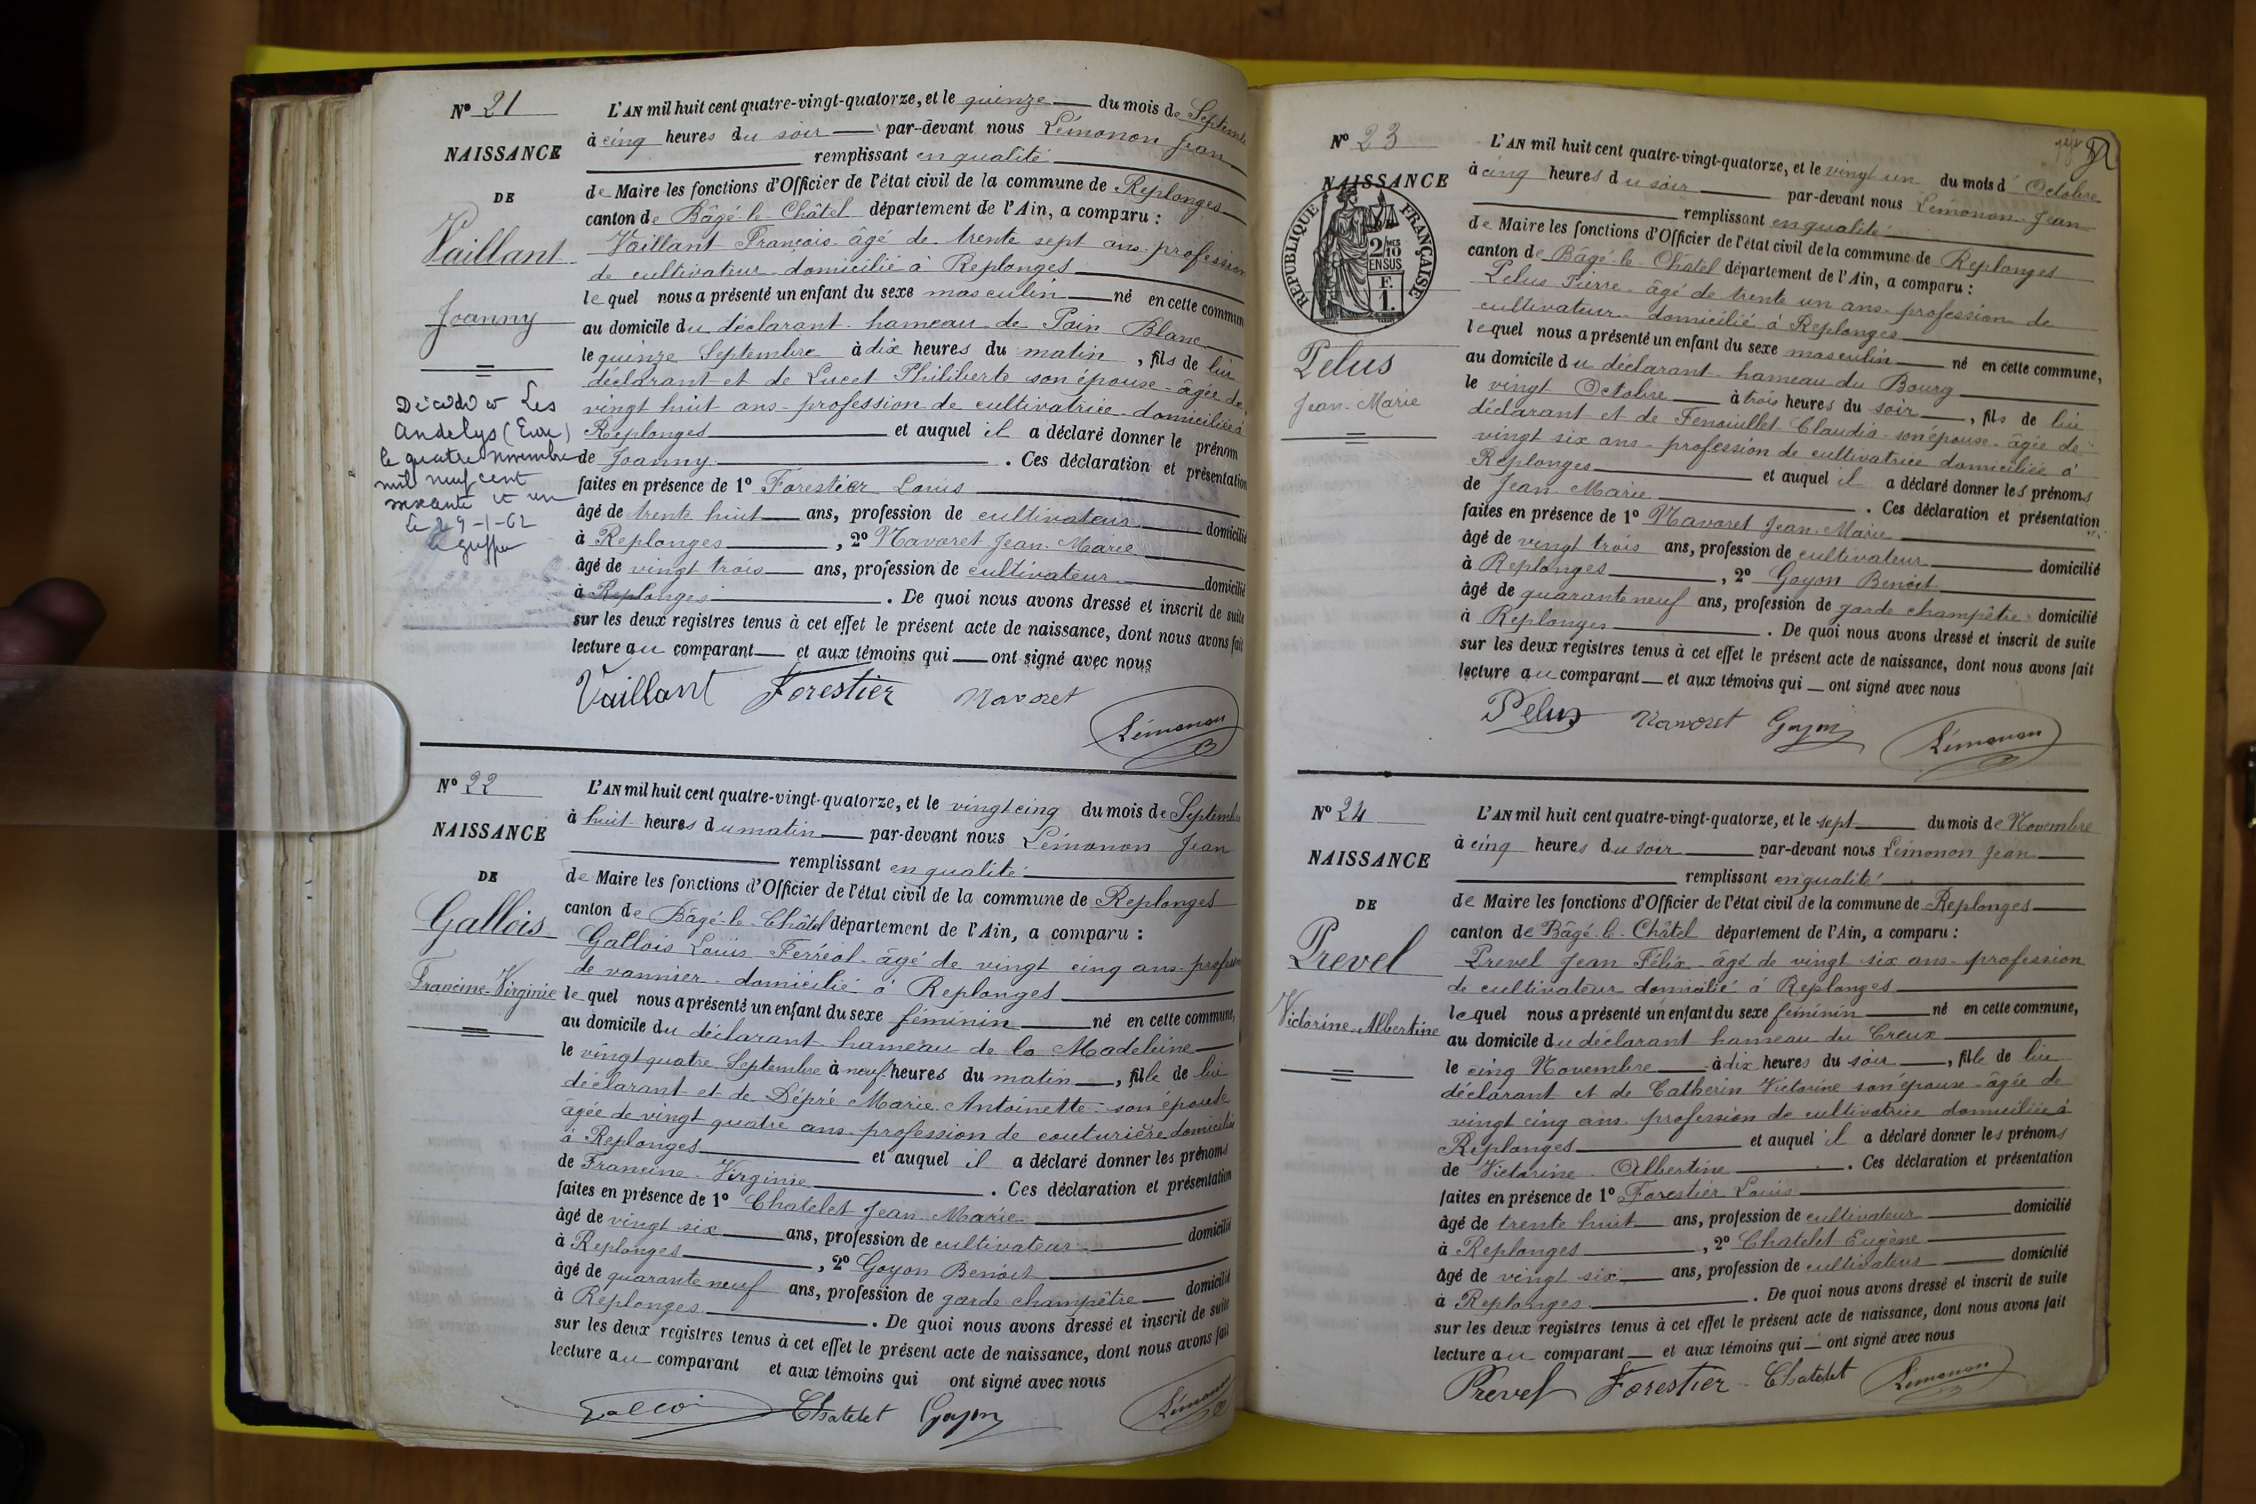 Nº 21
NAISSANCE
DE
Vaillant
Joanny
Décédé Les
Andelys (Eure)
le quatre novembre
mil neuf cent
soixante et un
Le 29-1-62
L'AN mil huit cent quatre-vingt-quatorze, et le quinze du mois de Septembre
à cinq heures du soir par-devant nous Lémonon Jean
remplissant en qualité
de Maire les fonctions d'Officier de l'état civil de la commune de Replonges
canton de Bâgé-le-Châtel département de l'Ain, a comparu :
Vaillant François âgé de trente sept ans profession
de cultivateur domicilié à Replonges
lequel nous a présenté un enfant du sexe masculin né en cette commune
au domicile du déclarant hameau de Pain Blanc
le quinze Septembre à dix heures du matin, fils de lui
déclarant et de Lucet Philiberte son épouse âgée de
vingt huit ans profession de cultivatrice domiciliée à
Replonges et auquel il a déclaré donner le prénom
de Joanny. Ces déclaration et présentation
faites en présence de 1º Forestier Louis
âgé de trente huit ans, profession de cultivateur domicilié
à Replonges, 2º Navoret Jean Marie
âgé de vingt trois ans, profession de cultivateur domicilié
à Replonges. De quoi nous avons dressé et inscrit de suite
sur les deux registres tenus à cet effet le présent acte de naissance, dont nous avons fait
lecture au comparant et aux témoins qui ont signé avec nous
Vaillant Forestier Navoret
Lémonon
Nº 22
NAISSANCE
DE
Gallois
Francine-Virginie
L'AN mil huit cent quatre-vingt-quatorze, et le vingt cinq du mois de Septembre
à huit heures du matin par-devant nous Lémonon Jean
remplissant en qualité
de Maire les fonctions d'Officier de l'état civil de la commune de Replonges
canton de Bâgé-le-Châtel département de l'Ain, a comparu :
Gallois Louis Ferréol âgé de vingt cinq ans profession
de vannier domicilié à Replonges
lequel nous a présenté un enfant du sexe féminin né en cette commune,
au domicile du déclarant hameau de la Madeleine
le vingt quatre Septembre à neuf heures du matin, fille de lui
déclarant et de Dépré Marie Antoinette son épouse
âgée de vingt quatre ans profession de couturière domiciliée
à Replonges et auquel il a déclaré donner les prénoms
de Francine Virginie. Ces déclaration et présentation
faites en présence de 1º Chatelet Jean Marie
âgé de vingt six ans, profession de cultivateur domicilié
à Replonges, 2º Goyon Benoit
âgé de quarante neuf ans, profession de garde champêtre domicilié
à Replonges. De quoi nous avons dressé et inscrit de suite
sur les deux registres tenus à cet effet le présent acte de naissance, dont nous avons fait
lecture au comparant et aux témoins qui ont signé avec nous
Chatelet Goyon Lémonon
Nº 23
NAISSANCE
RÉPUBLIQUE FRANÇAISE
2/10
EN SUS
F.
1.
Pelus
Jean-Marie
L'AN mil huit cent quatre-vingt-quatorze, et le vingt un du mois d'Octobre
à cinq heures du soir par-devant nous Lémonon Jean
remplissant en qualité
de Maire les fonctions d'Officier de l'état civil de la commune de Replonges
canton de Bâgé-le-Châtel département de l'Ain, a comparu :
Pelus Pierre âgé de trente un ans profession de
cultivateur domicilié à Replonges
lequel nous a présenté un enfant du sexe masculin né en cette commune,
au domicile du déclarant hameau du Bourg
le vingt Octobre à trois heures du soir, fils de lui
déclarant et de Fenouillet Claudia son épouse âgée de
vingt six ans profession de cultivatrice domiciliée à
Replonges et auquel il a déclaré donner les prénoms
de Jean Marie. Ces déclaration et présentation
faites en présence de 1º Navoret Jean Marie
âgé de vingt trois ans, profession de cultivateur domicilié
à Replonges, 2º Goyon Benoit
âgé de quarante neuf ans, profession de garde champêtre domicilié
à Replonges. De quoi nous avons dressé et inscrit de suite
sur les deux registres tenus à cet effet le présent acte de naissance, dont nous avons fait
lecture au comparant et aux témoins qui ont signé avec nous
Pelus Navoret Goyon Lémonon
Nº 24
NAISSANCE
DE
Prevel
Victorine-Albertine
L'AN mil huit cent quatre-vingt-quatorze, et le sept du mois de Novembre
à cinq heures du soir par-devant nous Lémonon Jean
remplissant en qualité
de Maire les fonctions d'Officier de l'état civil de la commune de Replonges
canton de Bâgé-le-Châtel département de l'Ain, a comparu :
Prevel Jean Félix âgé de vingt six ans profession
de cultivateur domicilié à Replonges
lequel nous a présenté un enfant du sexe féminin né en cette commune,
au domicile du déclarant hameau du Creux
le cinq Novembre à dix heures du soir, fille de lui
déclarant et de Catherin Victorine son épouse âgée de
vingt cinq ans profession de cultivatrice domiciliée à
Replonges et auquel il a déclaré donner les prénoms
de Victorine Albertine. Ces déclaration et présentation
faites en présence de 1º Forestier Louis
âgé de trente huit ans, profession de cultivateur domicilié
à Replonges, 2º Chatelet Eugène
âgé de vingt six ans, profession de cultivateur domicilié
à Replonges. De quoi nous avons dressé et inscrit de suite
sur les deux registres tenus à cet effet le présent acte de naissance, dont nous avons fait
lecture au comparant et aux témoins qui ont signé avec nous
Prevel Forestier Chatelet Lémonon